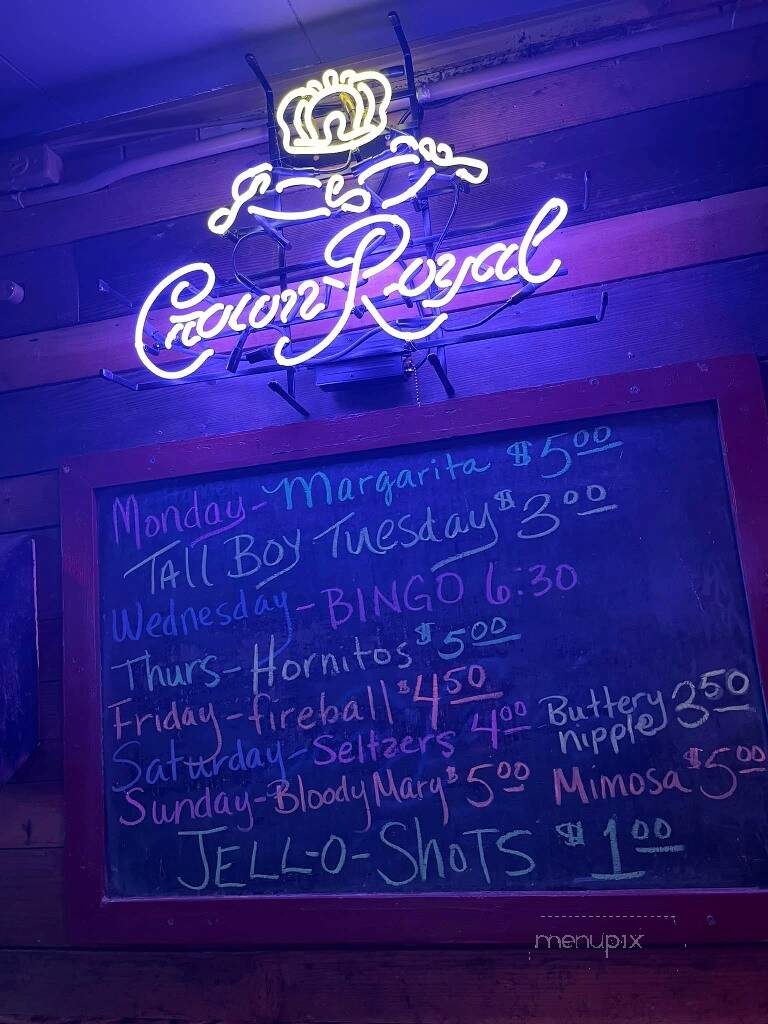 Crown Royal
Monday - Margarita $5.00
Tall Boy Tuesday $3.00
Wednesday - BINGO 6:30
Thurs - Hornitos $5.00
Friday - fireball $4.50
Saturday - Seltzers 4.00 Buttery nipple 3.50
Sunday - Bloody Mary $5.00 Mimosa $5.00
JELL-O-SHOTS $1.00
menupix